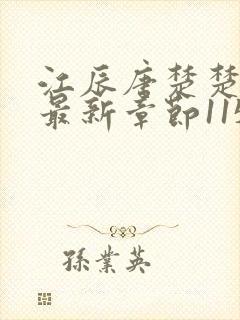 江辰唐楚楚
最新章节115
孫業英